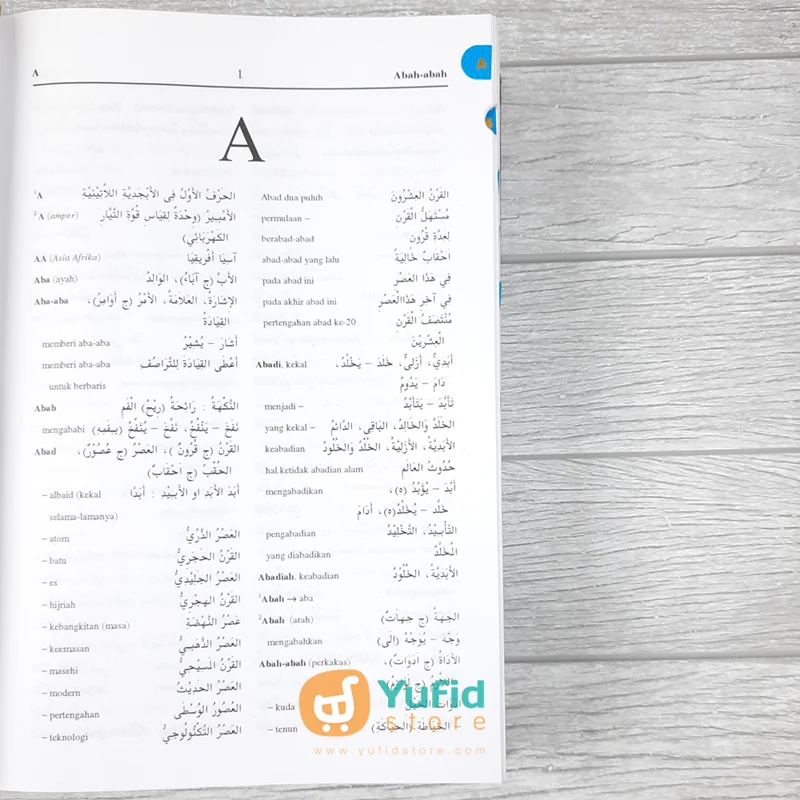 A 1 Abah-abah
A
A
¹A الحَرْفُ الأَوَّلُ فِى الأَبْجَدِيَّةِ اللاَّتِيْنِيَّةِ
²A (amper) الأَمْبِيرُ (وِحْدَةٌ لِقِيَاسِ قُوَّةِ التَّيَّارِ
الكَهْرَبَائِي)
AA (Asia Afrika) آسِيَا أَفْرِيقِيَا
Aba (ayah) الأَبُ (ج آبَاءُ)، الوَالِدُ
Aba-aba الإِشَارَةُ، العَلاَمَةُ، الأَمْرُ (ج أَوَامِرُ)،
القِيَادَةُ
memberi aba-aba أَشَارَ – يُشِيْرُ
memberi aba-aba أَعْطَى القِيَادَةَ لِلتَّرَاصُفِ
untuk berbaris
Abab النَّكْهَةُ : رَائِحَةُ (رِيْحُ) الْفَمِ
mengababi نَفَخَ – يَنْفُخُ، نَفَّخَ – يُنَفِّخُ (بِفَمِهِ)
Abad القَرْنُ (ج قُرُونٌ)، العَصْرُ (ج عُصُوْرٌ)،
الحُقْبُ (ج اَحْقَابٌ)
– albaid (kekal أَبَدَ الأَبَدِ او الأَبِـيْدِ : أَبَدًا
selama-lamanya)
– atom العَصْرُ الذَّرِّيُّ
– batu القَرْنُ الحَجَرِيُّ
– es العَصْرُ الجَلِيْدِيُّ
– hijriah القَرْنُ الهِجْرِيُّ
– kebangkitan (masa) عَصْرُ النَّهْضَةِ
– keemasan العَصْرُ الذَّهَبِيُّ
– masehi القَرْنُ المَسِيْحِيُّ
– modern العَصْرُ الحَدِيْثُ
– pertengahan العُصُوْرُ الوُسْطَى
– teknologi العَصْرُ التَّكْنُولُوجِيُّ
Abad dua puluh القَرْنُ العِشْرُونَ
permulaan – مُسْتَهَلُّ الْقَرْنِ
berabad-abad لِعِدَّةِ قُرُونٍ
abad-abad yang lalu اَحْقَابٌ خَالِيَةٌ
pada abad ini فِي هَذَا العَصْرِ
pada akhir abad ini فِي آخِرِ هَذَاالْعَصْرِ
pertengahan abad ke-20 مُنْتَصَفُ الْقَرْنِ
الْعِشْرِيْنَ
Abadi, kekal أَبَدِيٌّ، أَزَلِيٌّ، خَلَدَ – يَخْلُدُ،
دَامَ – يَدُومُ
menjadi – تَأَبَّدَ – يَتَأَبَّدُ
yang kekal – الخَلَدُ وَالخَالِدُ، البَاقِى، الدَّائِمُ
keabadian الأَبَدِيَّةُ، الأَزَلِيَّةُ، الخُلْدُ وَالخُلُودُ
hal.ketidak abadian alam حُدُوثُ العَالَمِ
mengabadikan أَبَّدَ – يُؤَبِّدُ (ه)،
خَلَّدَ – يُخَلِّدُ(ه)، أَدَامَ
pengabadian التَّأْبِـيْدُ، التَّخْلِيْدُ
yang diabadikan المُخَلَّدُ
Abadiah, keabadian الأَبَدِيَّةُ، الخُلُودُ
¹Abah → aba
²Abah (arah) الجِهَةُ (ج جِهَاتٌ)
mengabahkan وَجَّهَ – يُوَجِّهُ (اِلَى)
Abah-abah (perkakas) الأَدَاةُ (ج اَدَوَاتٌ)،
– kuda
– tenun الخِيَاطَة (الحِيَاكَة)
Yufid
store
www.yufidstore.com